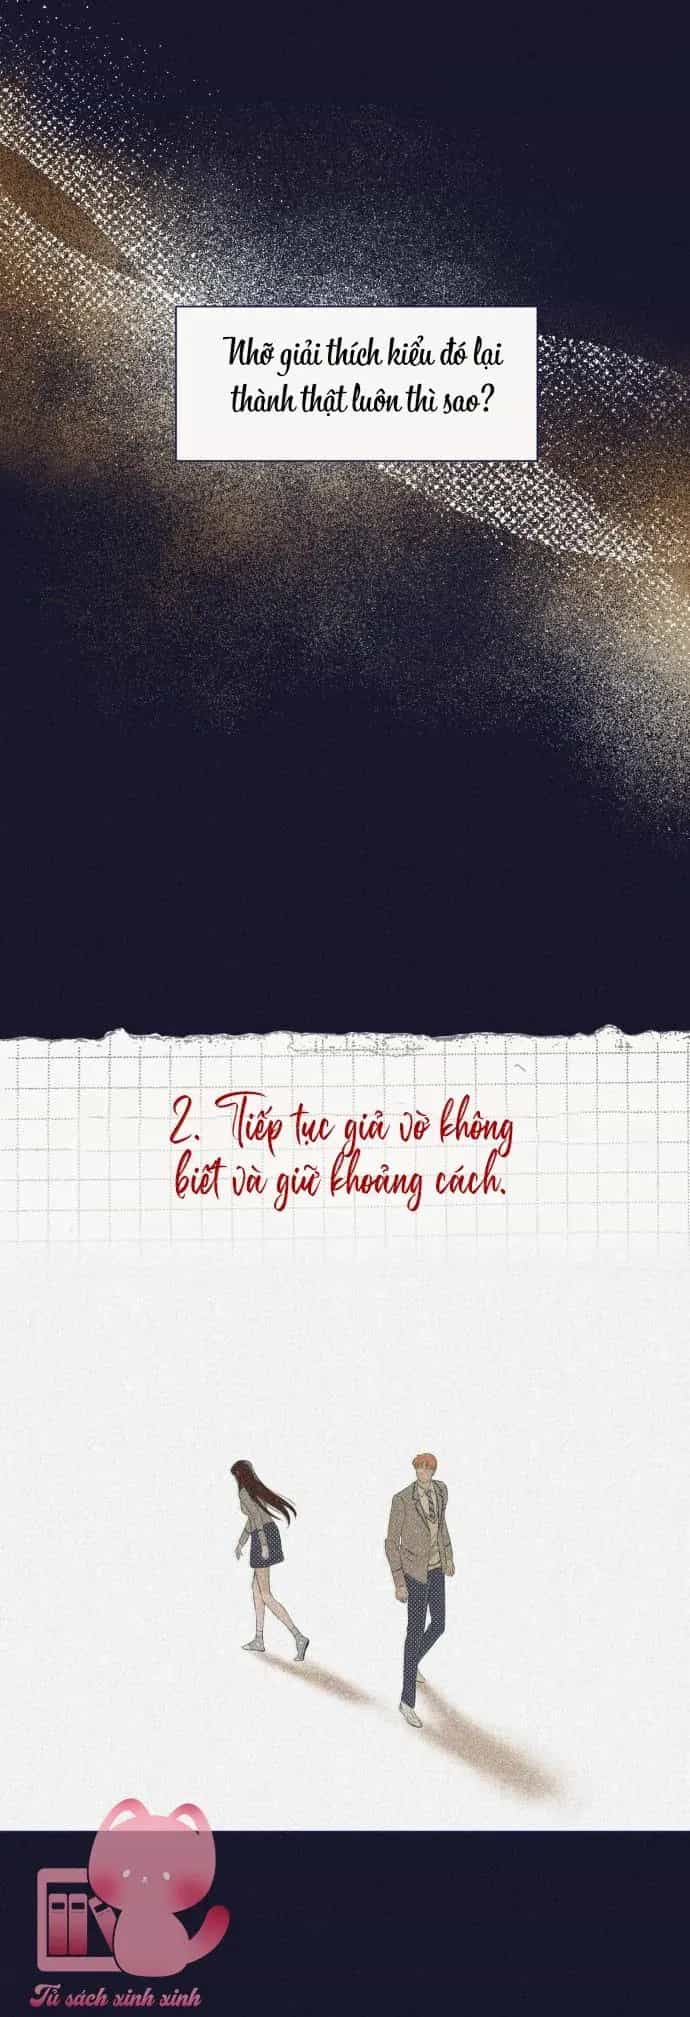 Nhỡ giải thích kiểu đó lại
thành thật luôn thì sao?
2. Tiếp tục giả vờ không
biết và giữ khoảng cách.
Tủ sách xinh xinh